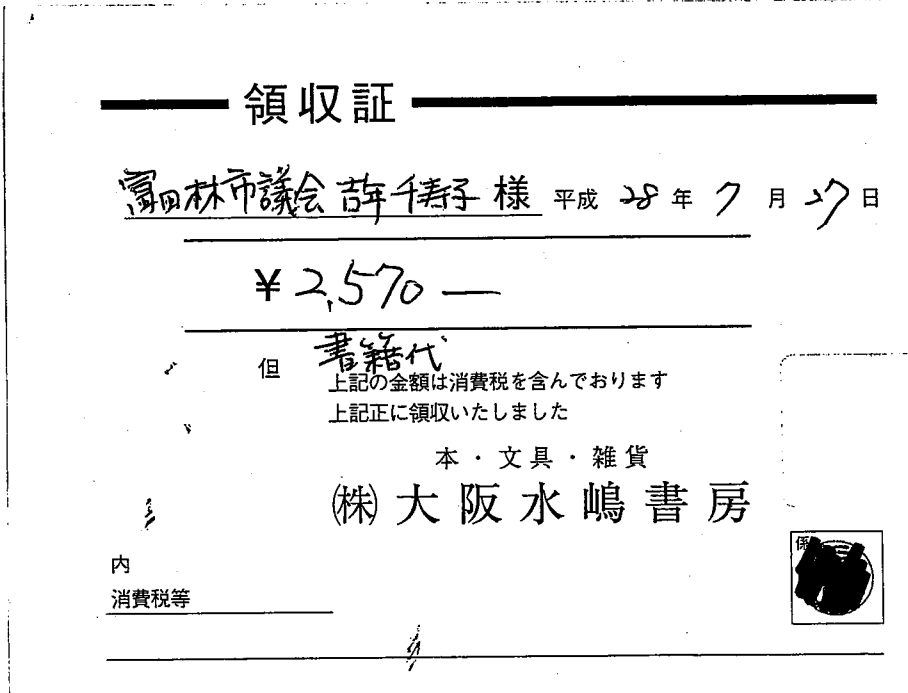 領収証
富田林市議会 吉年千寿子 様 平成 28 年 7 月 27 日
¥ 2,570 —
但 書籍代
上記の金額は消費税を含んでおります
上記正に領収いたしました
本・文具・雑貨
㈱大阪水嶋書房
係
内
消費税等